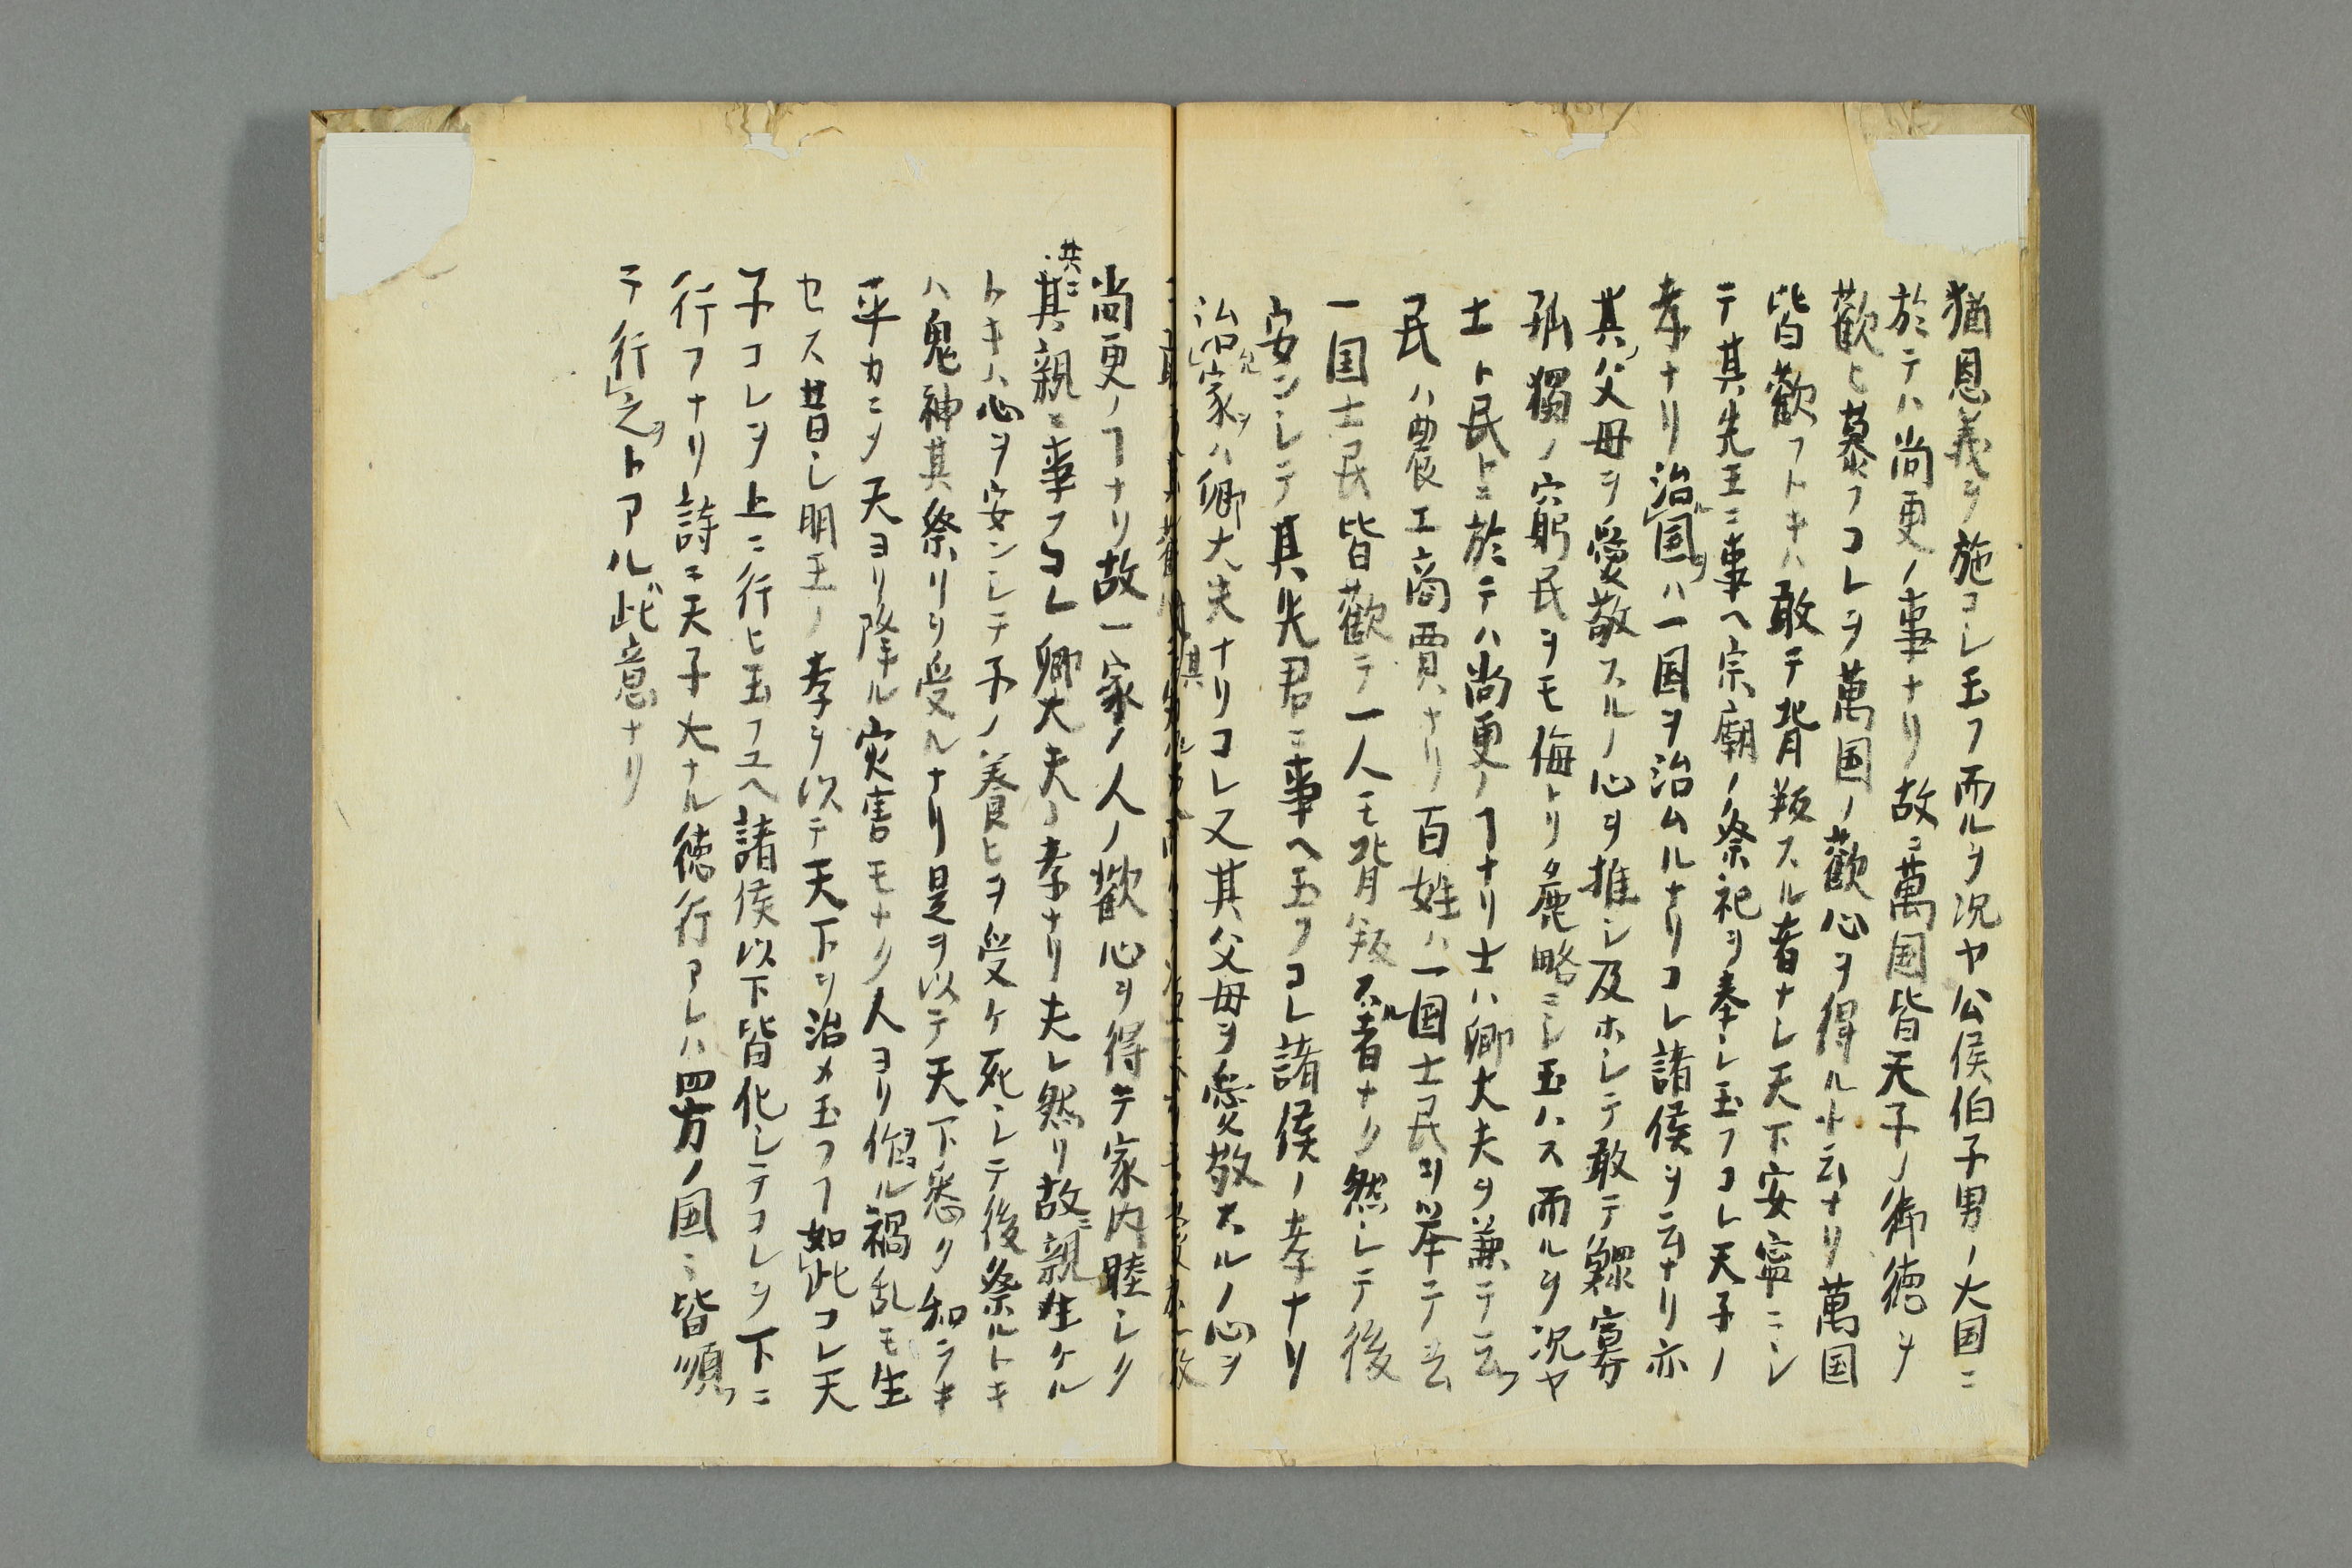 猶恩義ヲ施コシ玉フ而ルヲ況ヤ公侯伯子男ノ大国ニ
於テハ尚更ノ事ナリ故ニ萬国皆天子ノ御徳ヲ
歡ヒ慕フコレヲ萬国ノ歡心ヲ得ルト云ナリ萬国
皆歡フトキハ敢テ背叛スル者ナシ天下安寧ニシ
テ其先王ニ事ヘ宗廟ノ祭祀ヲ奉シ玉フコレ天子ノ
孝ナリ治国ヲハ一国ヲ治ムルナリコレ諸侯ヲ云ナリ亦
其父母ヲ愛敬スルノ心ヲ推シ及ホシテ敢テ鰥寡
孤獨ノ窮民ヲモ侮トリ麁略ニシ玉ハス而ルヲ況ヤ
士ト民トニ於テハ尚更ノヿナリ士ハ卿大夫ヲ兼テ云フ
民ハ農工商賈ナリ百姓ハ一国士民ヲ举テ云
一国士民皆歡テ一人モ背叛スル者ナク然シテ後
安ンシテ其先君ニ事ヘ玉フコレ諸侯ノ孝ナリ
治家ヲハ卿大夫ナリコレ又其父母ヲ愛敬スルノ心ヲ
尚更ノヿナリ故一家ノ人ノ歡心ヲ得テ家内睦シク
共ニ
其親ニ事フコレ卿大夫ノ孝ナリ夫レ然リ故ニ親生ケル
トキハ心ヲ安ンシテ子ノ養ヒヲ受ケ死シテ後祭ルトキ
ハ鬼神其祭リヲ受ルナリ是ヲ以テ天下悉ク和ラキ
平カニメ天ヨリ降ル灾害モナク人ヨリ作ル禍乱モ生
セス昔シ明王ノ孝ヲ以テ天下ヲ治メ玉フヿ如此コレ天
子コレヲ上ニ行ヒ玉フユヘ諸侯以下皆化シテコレヲ下ニ
行フナリ詩ニ天子大ナル徳行アレハ四方ノ国ミ皆順フ
テ行之ヲトアル此意ナリ